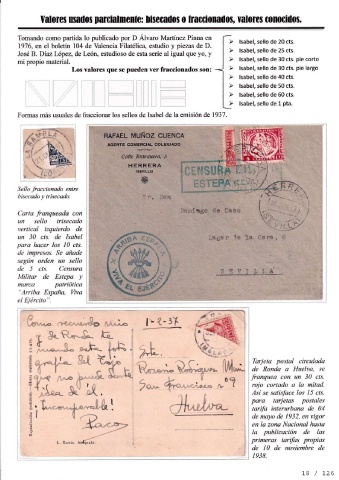 Valores usados parcialmente: bisecados o fraccionados, valores conocidos.
Tomando como partida lo publicado por D Álvaro Martínez Pinna en
1976, en el boletín 104 de Valencia Filatélica, estudio y piezas de D.
José B. Díaz López, de León, estudioso de esta serie al igual que yo, y
mi propio material.
Los valores que se pueden ver fraccionados son:
Isabel, sello de 20 cts.
Isabel, sello de 25 cts.
Isabel, sello de 30 cts. pie corto
Isabel, sello de 30 cts. pie largo
Isabel, sello de 40 cts.
Isabel, sello de 50 cts.
Isabel, sello de 60 cts.
Isabel, sello de 1 pta.
Formas más usuales de fraccionar los sellos de Isabel de la emisión de 1937.
RAFAEL MUÑOZ CUENCA
AGENTE COMERCIAL COLEGIADO
HERRERA
(SEVILLA)
CENSURA
ESTEPA
Sr. Don
Domingo de Casa
SEVILLA
ARRIBA ESPAÑA
VIVA EL EJERCITO
Sello fraccionado entre
bisecado y trisecado.
Carta franqueada con
un sello trisecado
vertical izquierdo de
un 30 cts. de Isabel
para hacer los 10 cts.
de impresos. Se añade
según orden un sello
de 5 cts. Censura
Militar de Estepa y
marca patriótica
"Arriba España, Viva
el Ejército".
1-2-37
Como recuerdo
de Ronda te
mando esta foto
grafía del Tajo
que no puede darte
idea de él.
¡Incomparable!
Paco
Srta.
Rosario Rodríguez
San Francisco
Huelva
Tarjeta postal circulada
de Ronda a Huelva, se
franquea con un 30 cts.
rojo cortado a la mitad.
Así se satisface los 15 cts.
para tarjetas postales
tarifa interurbana de 04
de mayo de 1932, en vigor
en la zona Nacional hasta
la publicación de las
primeras tarifas propias
de 10 de noviembre de
1938.
18 / 126